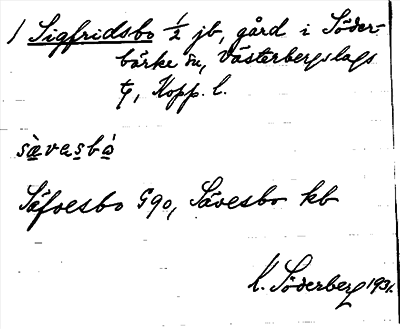 1 Sigfridsbo ½ jb, gård i Söder-
bärke sn, Västerbergslags
tg, Kopp. l.
sàvasbó
Säfvesbo G90, Sävesbo kb
K. Söderberg 1931.